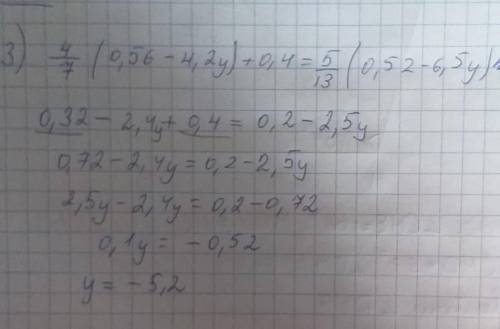 3) 4/7 (0,56 - 4,2y) + 0,4 = 5/13 (0,52 - 6,5y)
0,32 - 2,4y + 0,4 = 0,2 - 2,5y
0,72 - 2,4y = 0,2 - 2,5y
2,5y - 2,4y = 0,2 - 0,72
0,1y = - 0,52
y = - 5,2